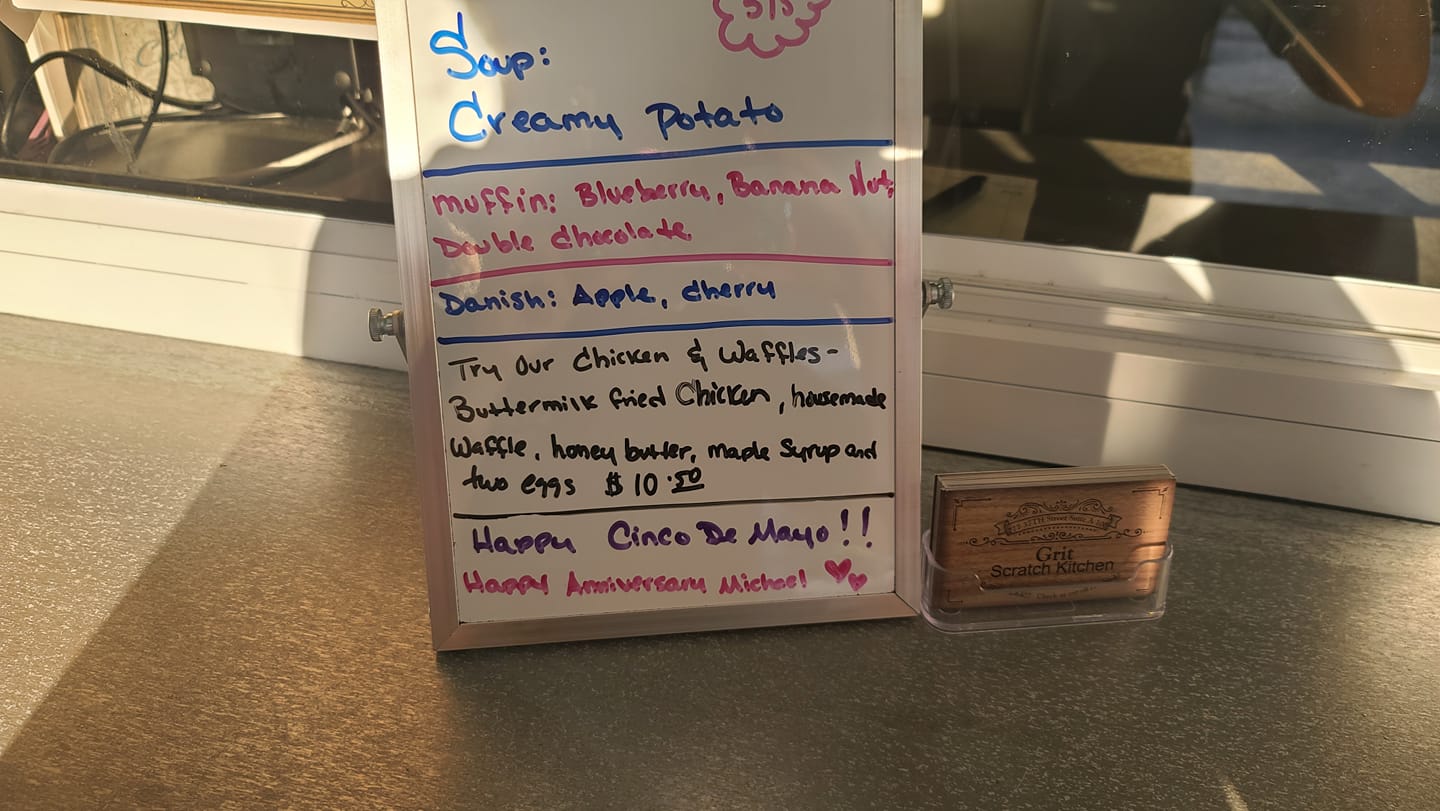 5/5
Soup:
Creamy Potato
Muffin: Blueberry, Banana Nut,
Double Chocolate
Danish: Apple, Cherry
Try Our Chicken & Waffles-
Buttermilk fried Chicken, housemade
Waffle, honey butter, maple Syrup and
two eggs $10.50
Happy Cinco De Mayo!!
Happy Anniversary Michael
Street Suite A
Grit
Scratch Kitchen